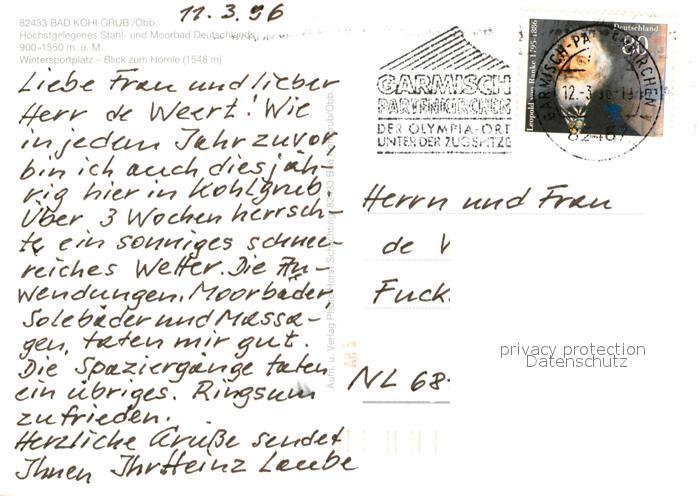 11.3.96
82433 BAD KOHLGRUB /Obb.
Höchstgelegenes Stahl- und Moorbad Deutschlands
900–1550 m. ü. M.
Wintersportplatz – Blick zum Hörnle (1548 m)
Liebe Frau und lieber
Herr de Weert! Wie
in jedem Jahr zuvor
bin ich auch diesjäh-
rig hier in Kohlgrub.
Über 3 Wochen herrsch-
te ein sonniges schnee-
reiches Wetter. Die An-
wendungen, Moorbäder,
Solebäder und Massa-
gen, taten mir gut.
Die Spaziergänge taten
ein übriges. Ringsum
zufrieden.
Herzliche Grüße sendet
Ihnen Ihr Heinz Laube
Aufn. u. Verlag Photo Horst 82433 Bad Kohlgrub/Obb.
GARMISCH
PARTENKIRCHEN
DER OLYMPIA-ORT
UNTER DER ZUGSPITZE
Leopold von Ranke 1795-1886
Deutschland
80
GARMISCH-PARTENKIRCHEN
12.-3.96
82467
Herrn und Frau
de W
Fuck.
NL 68-
privacy protection
Datenschutz